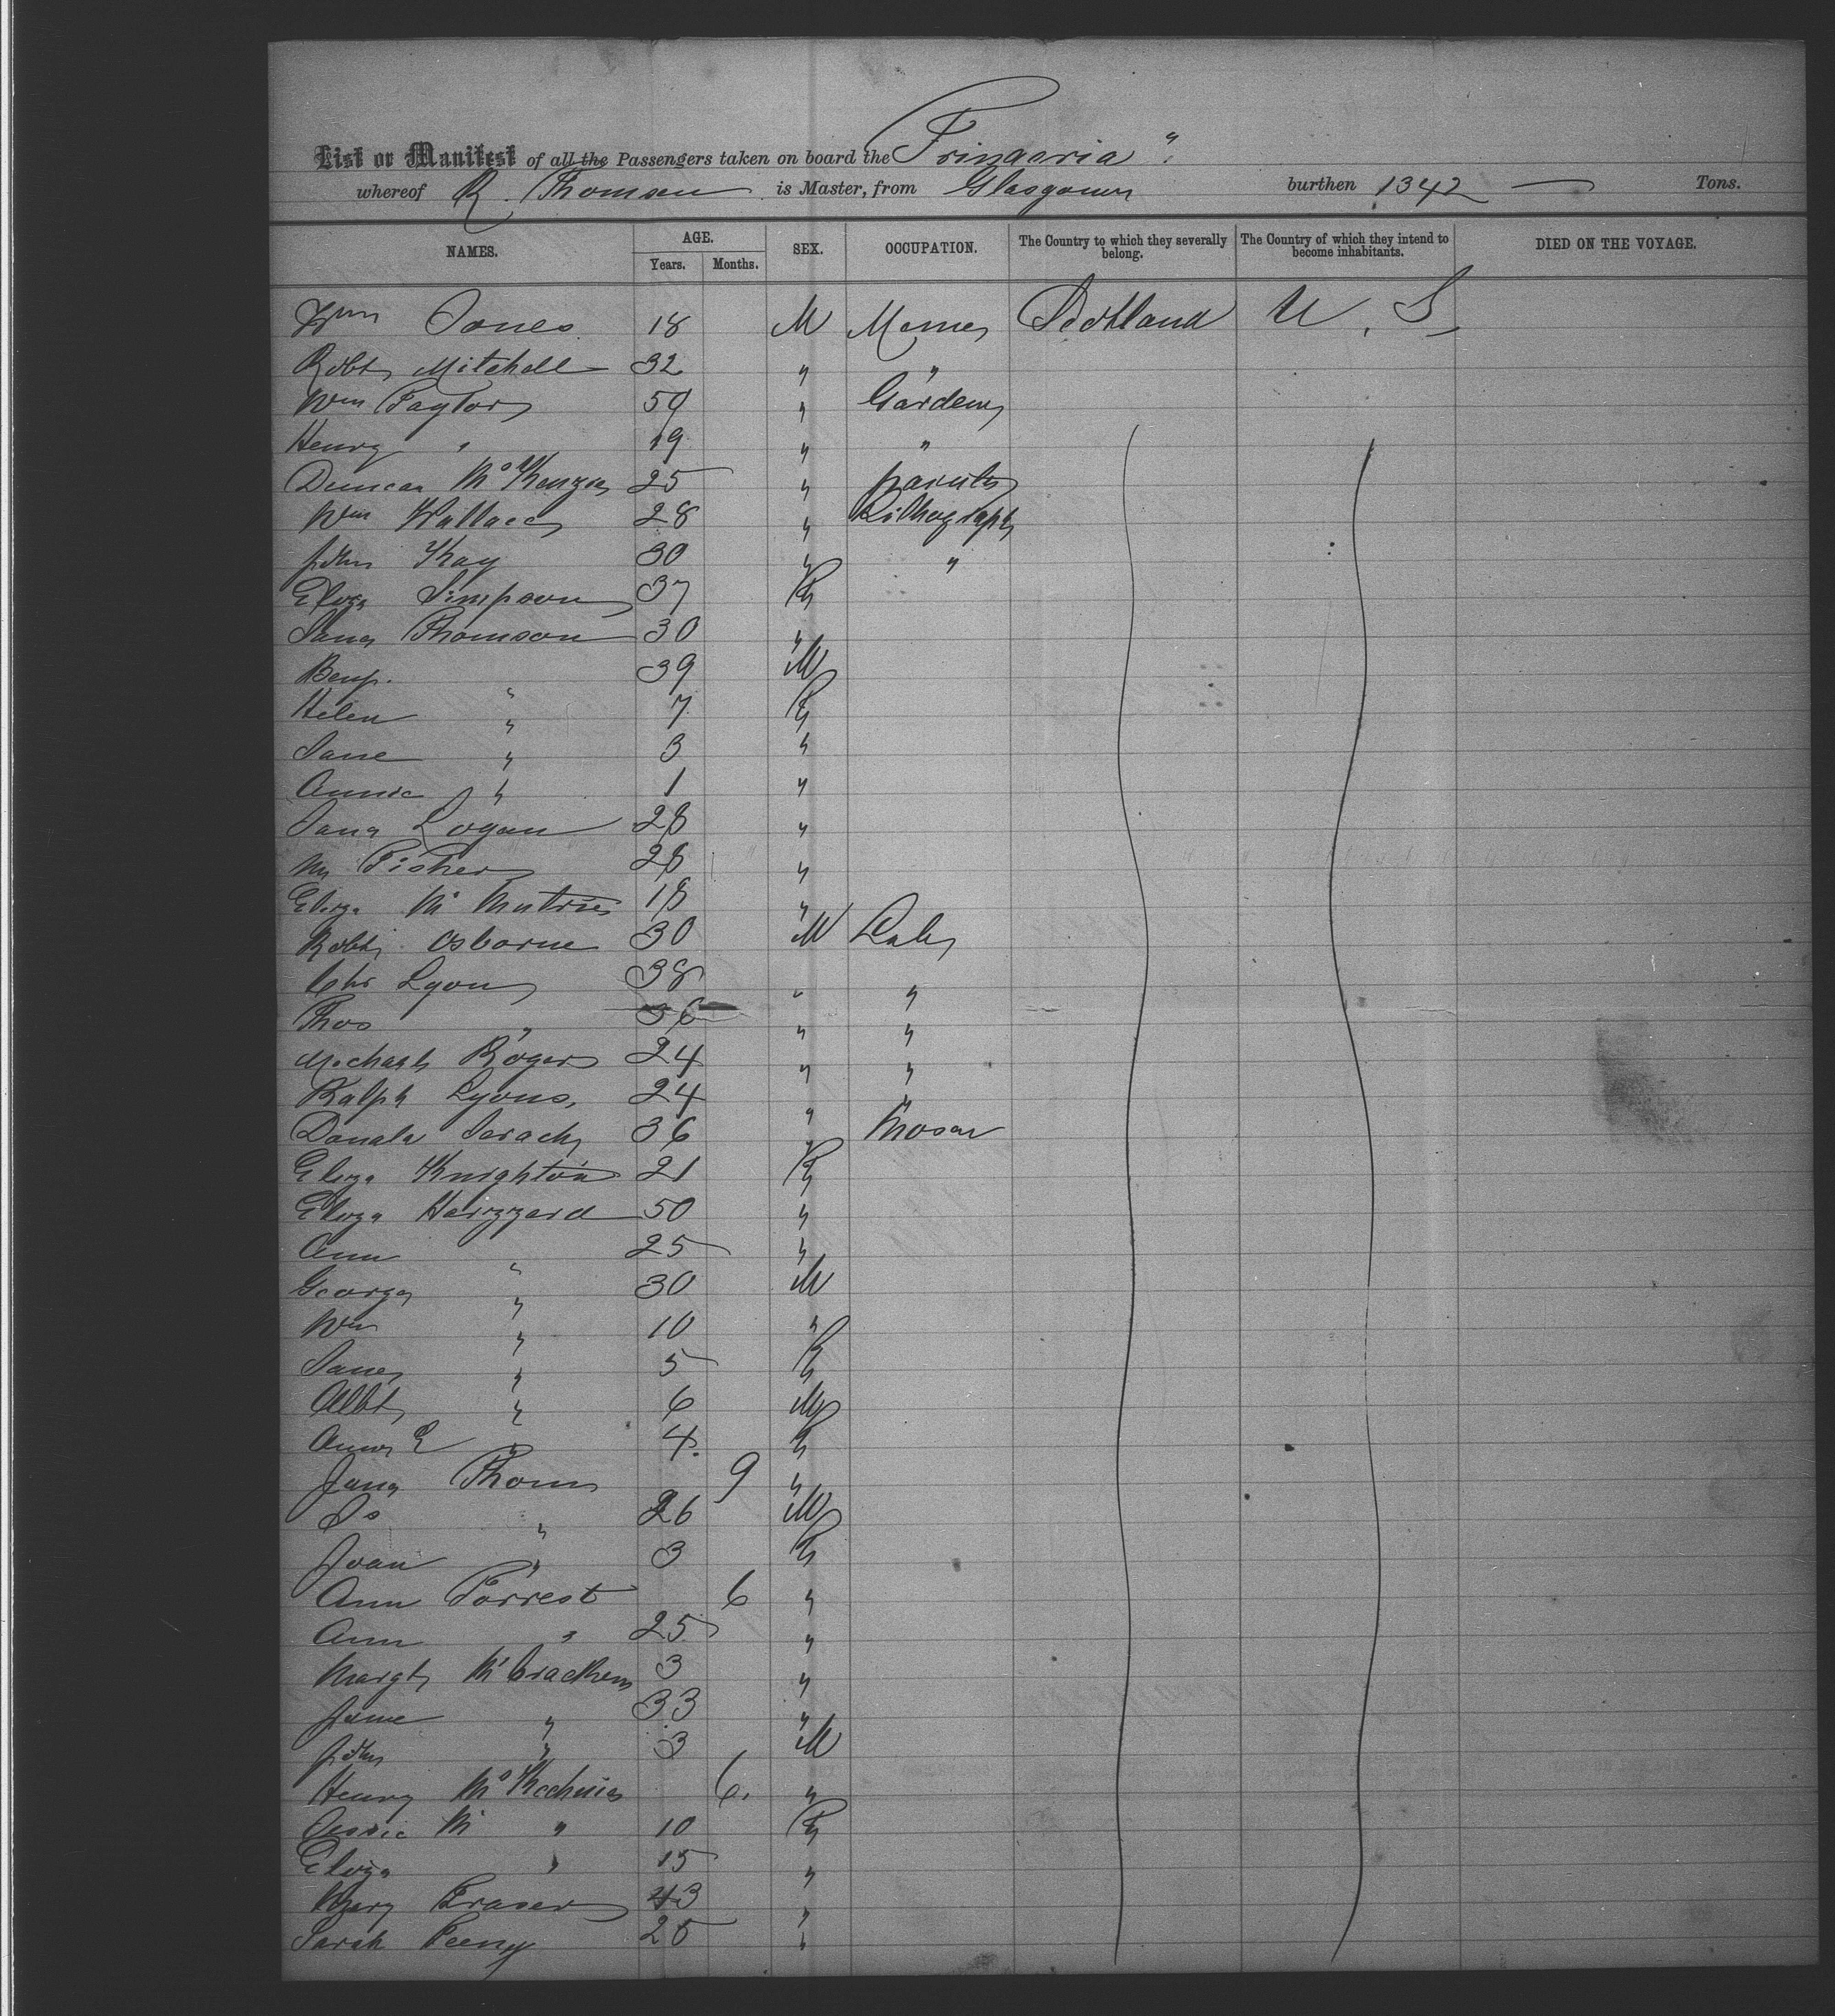 List or Manifest of all the Passengers taken on board the "Trinacria".
whereof R. Thomson is Master, from Glasgow burthen 1342 — Tons.
NAMES. AGE. SEX. OCCUPATION. The Country to which they severally belong. The Country of which they intend to become inhabitants. DIED ON THE VOYAGE.
Years. Months.
Wm Jones 18 M Scotland U. S.
Robt Mitchell 32 " "
Wm Taylor 59 " Gardener
Henry " 19 " "
Duncan McKenzie 25 " painter
Wm Wallace 28 " Lithograph
John Kay 30 " "
Eliza Simpson 37 F
Jane Thomson 30 "
Benj. " 39 M
Helen " 7 F
Jane " 3 "
Annie " 1 "
Jane Logan 28 "
My Fisher 28 "
Eliza McMutrie 18 "
Robt Osborne 30 M Labr
Chs Lyon 38 " "
Thos " 36 " "
Michael Roger 24 " "
Ralph Lyons, 24 " "
Donald 36 " Mason
Eliza Knighton 21 F
Eliza Hazzard 50 "
Ann " 25 "
George " 30 M
Wm " 10 "
Jane " 5 F
Albt " 6 M
Annie E " 4. F
Jane Thom 9 "
Js " 26 M
Joan " 3 F
Ann Forrest 6 "
Ann " 25 "
Margt McCracken 3 "
Jane " 33 "
John " 3 M
Henry McKechnie 6. "
Jessie M " 10 F
Eliza " 15 "
Mary Fraser 43 "
Sarah Feeny 25 "